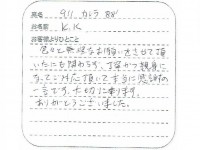 車名 911 カレラ '88
お名前 K.K
お客様よりひとこと
色々と無理なお願いをさせて頂
いたにも関わらず、丁寧かつ親身に
なってご対応頂いて本当に感謝の
一言です。大切に乗ります。
ありがとうございました。